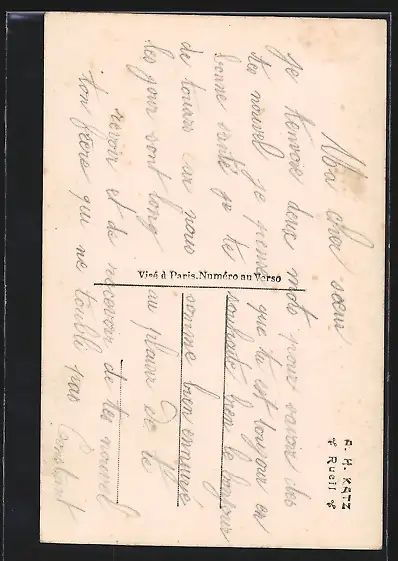 Mon cher sœur
je tenvoie deux mots pour savoir des
tes nouvel je pense que tu est toujour en
bonne santé je te souhaite bien le bonjour
de tousse car nous somme bien ennuyé
les jour sont long au plaisir de te
revoir et de recevoir de tes nouvel
ton frere qui ne toublie pas
Constant
Visé à Paris. Numéro au Verso
A. H. KATZ
Rueil